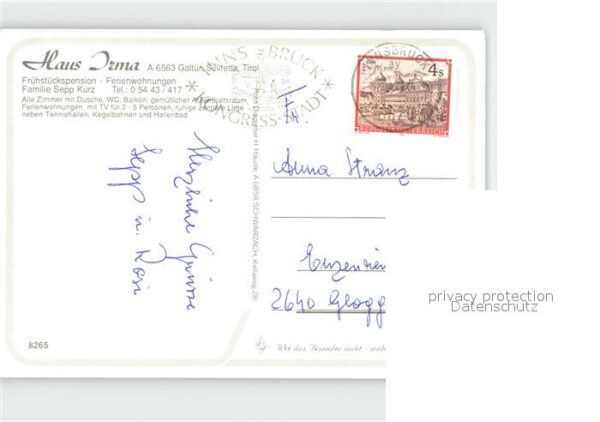 Haus Irma A-6563 Galtür, Silvretta, Tirol
Frühstückspension - Ferienwohnungen
Familie Sepp Kurz Tel.: 0 54 43 / 417
Alle Zimmer mit Dusche, WC, Balkon, gemütlicher Aufenthaltsraum,
Ferienwohnungen mit TV für 2 - 5 Personen, ruhige zentrale Lage
neben Tennishallen, Kegelbahnen und Hallenbad.
INNSBRUCK
KONGRESS-STADT
INNSBRUCK
4 S
REPUBLIK ÖSTERREICH
H. Häusle, A 6858 SCHWARZACH, Kellaweg 28
Herzliche Grüsse
Sepp u. Rosi
Anna Stranz
Enzenrei
2640 Glogg
privacy protection
Datenschutz
8265
Wer das Besondere sucht - wäh